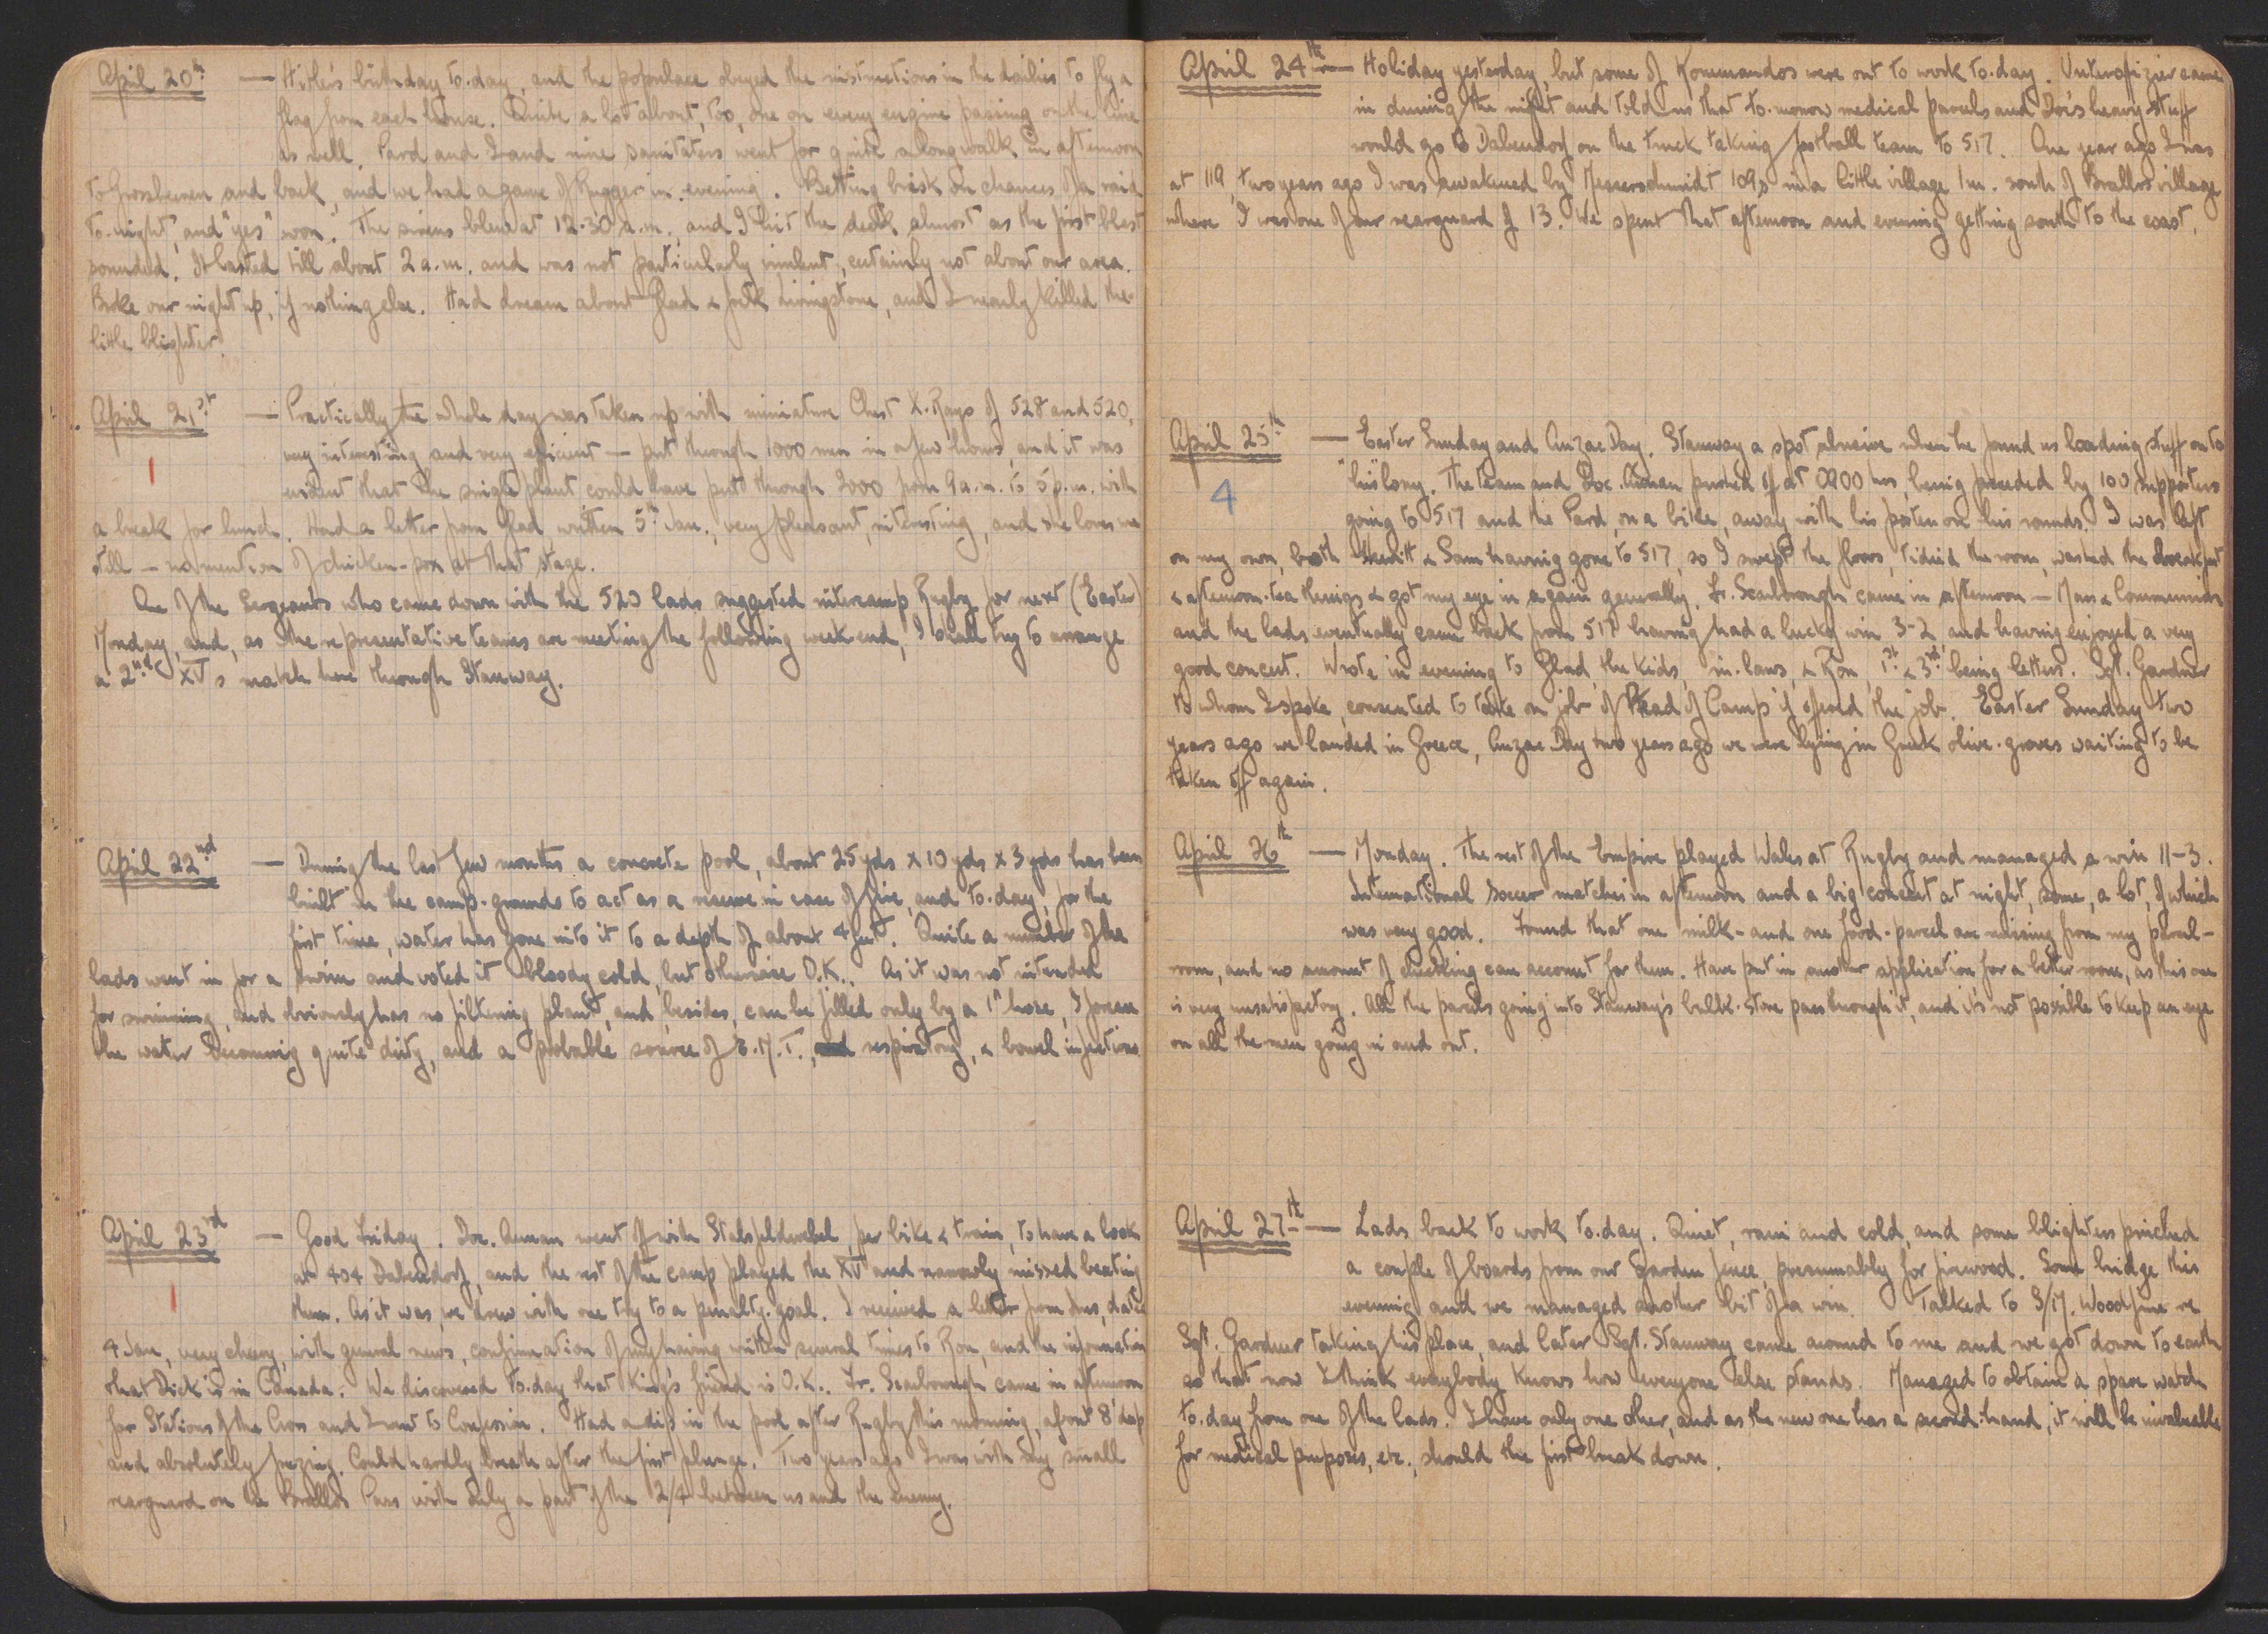 April 20th — Hitler's birthday to-day, and the populace obeyed the instructions in the dailies to fly a
flag from each house. Quite a lot about, too, one on every engine passing on the line
as well. Pard and I and nine sanitaters went for quite a long walk in afternoon
to Grossbeeren and back, and we had a game of Rugger in evening. Betting brisk on chances of a raid
to-night, and "yes" won. The sirens blew at 12.30 a.m., and I hit the deck almost as the first blast
sounded. It lasted till about 2 a.m. and was not particularly virulent, certainly not about our area.
Broke our night up, if nothing else. Had dream about Glad & Jock Livingstone, and I nearly killed the
little blighter.
April 21st — Practically the whole day was taken up with miniature Chest X-Rays of 528 and 520,
very interesting and very efficient — put through 1000 men in a few hours, and it was
evident that the single plant could have put through 2000 from 9 a.m. to 5 p.m. with
1
a break for lunch. Had a letter from Glad, written 5th Jan., very pleasant, interesting, and she loves me
still — no mention of chicken-pox at that stage.
One of the Sergeants who came down with the 520 lads suggested intercamp Rugby for next (Easter)
Monday, and, as the representative teams are meeting the following week-end, I shall try to arrange
a 2nd XVs match here through Stanway.
April 22nd — During the last few months a concrete pool, about 25 yds x 10 yds x 3 yds has been
built in the camp-grounds to act as a reserve in case of fire, and to-day, for the
first time, water has gone into it to a depth of about 4 feet. Quite a number of the
lads went in for a swim and voted it bloody cold, but otherwise O.K.. As it was not intended
for swimming, and obviously has no filtering plant, and, besides, can be filled only by a 1" hose, I foresee
the water becoming quite dirty, and a probable source of E.N.T., respiratory, & bowel infections
April 23rd — Good Friday. Doc. Aman went off with Stabsfeldwebel, per bike & train, to have a look
at 404 Dabendorf, and the rest of the camp played the XV and narrowly missed beating
1
them. As it was, we drew with one try to a penalty-goal. I received a letter from dated
4 Jan, very cheery, with general news, confirmation of my having written several times to Ron, and the information
that Dick is in Canada. We discovered to-day that King's friend is O.K.. Fr. Scarborough came in afternoon
for Stations of the Cross and I went to Confession. Had a dip in the pool after Rugby this morning, about 8' deep
and absolutely freezing. Could hardly breath after the first plunge. Two years ago I was with my small
rearguard on the Brallos Pass with only a part of the 2/4 between us and the enemy.
April 24th — Holiday yesterday, but some of Kommandos were out to work to-day. Unterofizier came
in during the night and told us that to-morrow medical parcels and Doc's heavy stuff
would go to Dabendorf on the truck taking football team to 517. One year ago I was
at 119, two years ago I was awakened by Messerschmidt 109s in a little village 1m. south of Brallos village
where I was one of our rearguard of 13. We spent that afternoon and evening getting south to the coast.
April 25th — Easter Sunday and Anzac Day. Stanway a spot abusive when he found us loading stuff onto
4
"his" lorry. The team and Doc. Aman pushed off at 0900 hrs, being preceded by 100 supporters
going to 517 and the Pard, on a bike, away with his posten on his rounds. I was left
on my own, both & Sam having gone to 517, so I swept the floors, tidied the room, washed the breakfast
& afternoon-tea things & got my eye in again generally. Fr. Scarborough came in afternoon — Mass & Communion
and the lads eventually came back from 517 having had a lucky win 3-2, and having enjoyed a very
good concert. Wrote in evening to Glad, the kids, in-laws, & Ron, 1st & 3rd being letters. Sgt. Gardner
to whom I spoke, consented to take on job of Head of Camp if offered the job. Easter Sunday two
years ago we landed in Greece, Anzac Day two years ago we were lying in Greek olive-groves waiting to be
taken off again.
April 26th — Monday. The rest of the Empire played Wales at Rugby and managed a win 11-3.
International soccer matches in afternoon and a big concert at night, some, a lot, of which
was very good. Found that one milk- and one food-parcel are missing from my parcel-
room, and no amount of checking can account for them. Have put in another application for a better room, as this one
is very unsatisfactory. All the parcels going into Stanway's bulk-store pass through it, and it's not possible to keep an eye
on all the men going in and out.
April 27th — Lads back to work to-day. Quiet, rain and cold, and some blighters pinched
a couple of boards from our garden fence, presumably for firewood. Some bridge this
evening and we managed another bit of a win. Talked to S/M. Woodfine re
Sgt. Gardner taking his place, and later Sgt. Stanway came around to me and we got down to earth
so that now I think everybody knows how everyone else stands. Managed to obtain a spare watch
to-day from one of the lads. I have only one other, and as the new one has a second-hand, it will be invaluable
for medical purposes, etc., should the first break down.